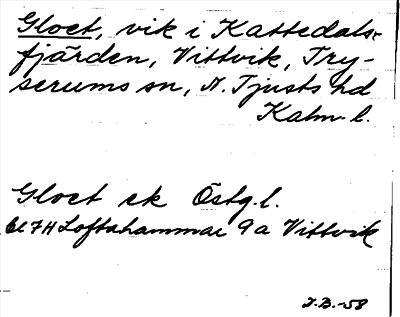 Gloet, vik i Kattedals-
fjärden, Vittvik, Try-
serums sn, N. Tjusts hd
Kalm. l.
Gloet ek Östg. l.
Bl 7H Loftahammar 9a Vittvik
J.B.-58